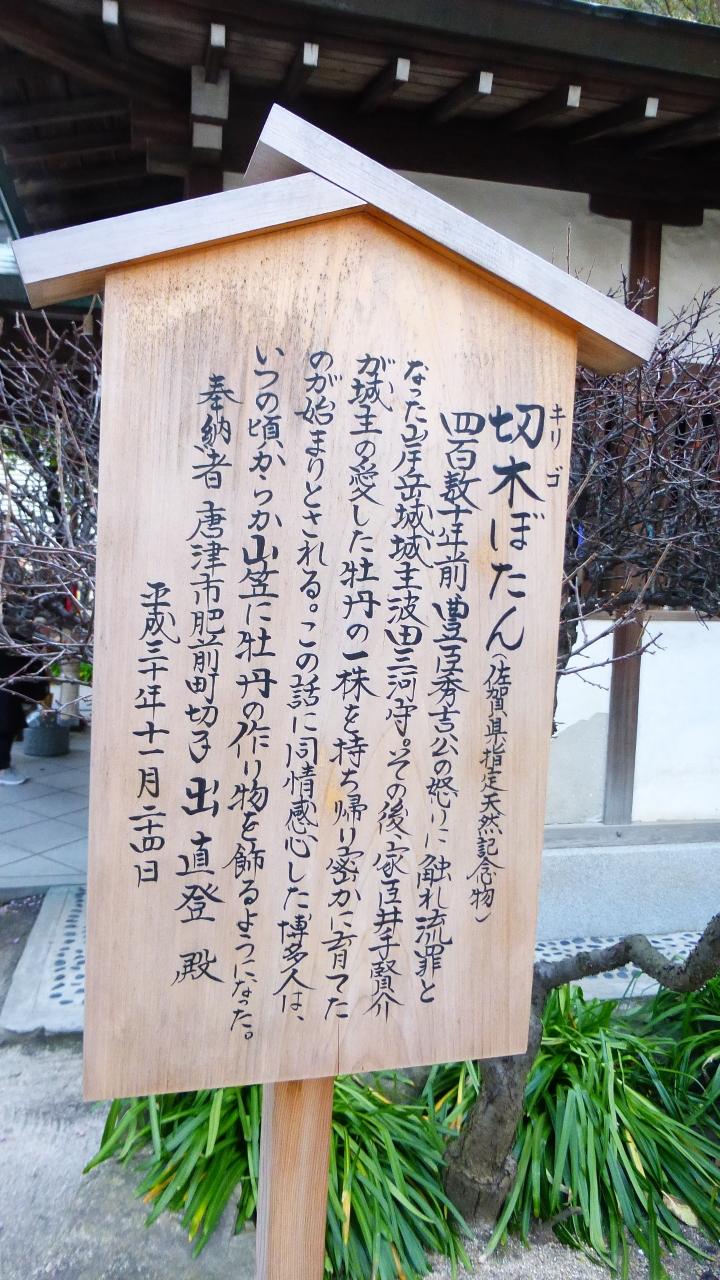 切木ぼたん(佐賀県指定天然記念物)
キリゴ
四百数十年前、豊臣秀吉公の怒りに触れ流罪と
なった岸岳城城主波田三河守。その後、家臣井手賢介
が城主の愛した牡丹の一株を持ち帰り密かに育てた
のが始まりとされる。この話に同情感心した博多人は、
いつの頃からか山笠に牡丹の作り物を飾るようになった。
奉納者 唐津市肥前町切木 出 直登 殿
平成三十年十一月二十四日